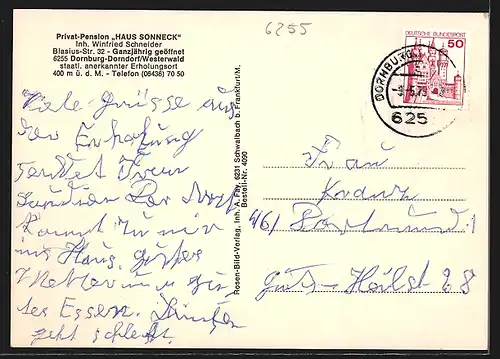 Privat-Pension „HAUS SONNECK"
Inh. Winfried Schneider
Blasius-Str. 32 - Ganzjährig geöffnet
6255 Dornburg-Dorndorf/Westerwald
staatl. anerkannter Erholungsort
400 m ü. d. M. - Telefon (06436) 70 50
6255
DEUTSCHE BUNDESPOST
50
DORNBURG
5.79
625
Viele Grüsse aus
der Erholung
sendet
Der Arzt
kommt zu mir
ins Haus, gutes
Wetter und gu-
tes Essen.
geht schlecht.
Rosen-Bild-Verlag, Inh. A. Fay, 6231 Schwalbach b. Frankfurt/M.
Bestell-Nr. 4090
Frau
46/ Dortmund 1
28